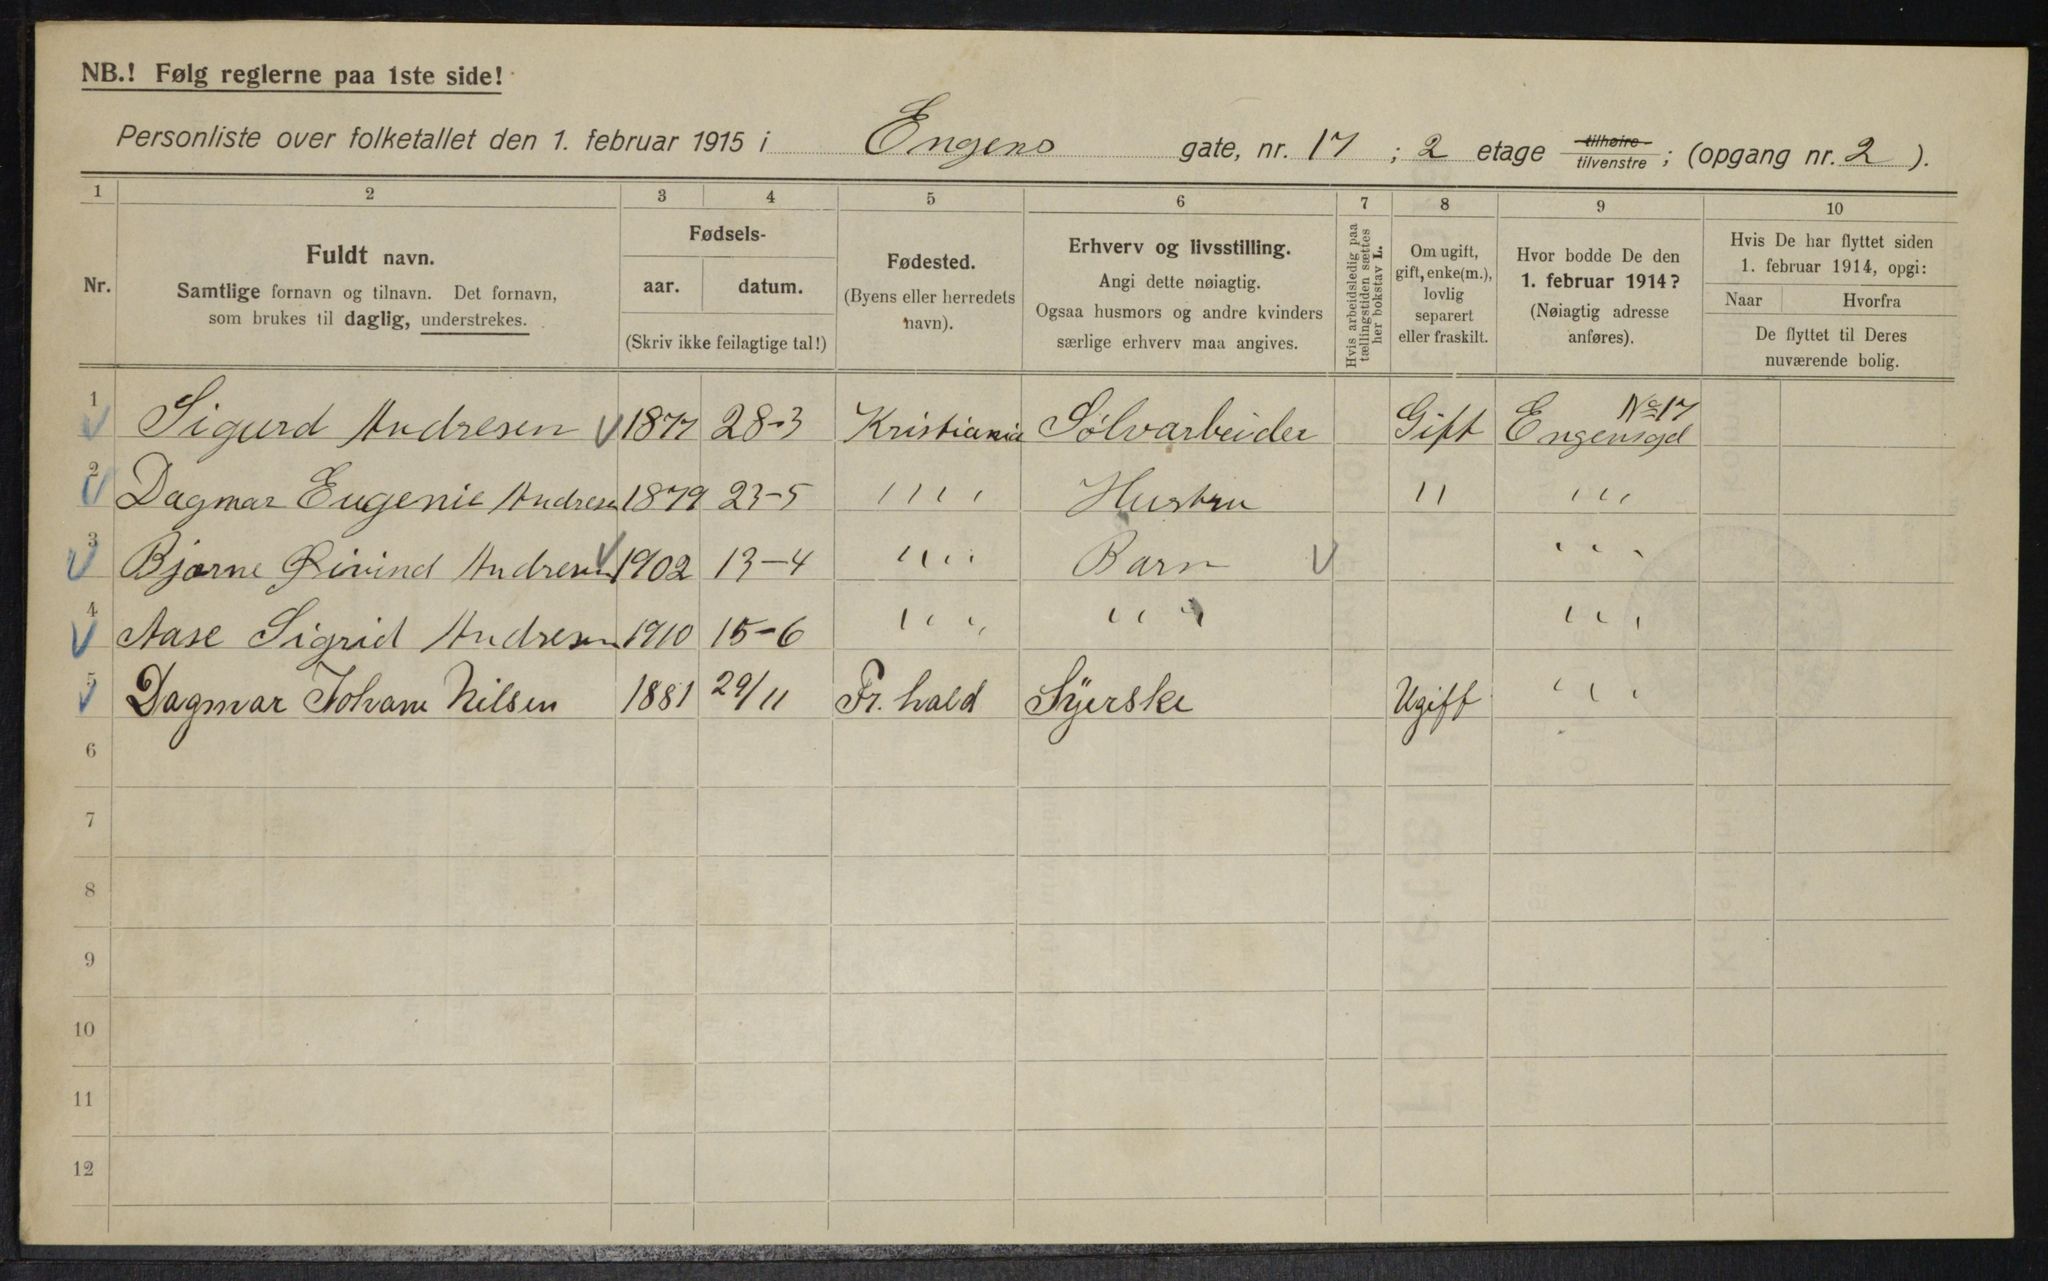 NB.! Følg reglerne paa 1ste side!
Personliste over folketallet den 1. februar 1915 i Engens gate, nr. 17 ; 2 etage tilhøire tilvenstre ; (opgang nr. 2 ).
1 2 3 4 5 6 7 8 9 10
Nr.
Fuldt navn.
Samtlige fornavn og tilnavn. Det fornavn,
som brukes til daglig, understrekes.
Fødsels-
aar. datum.
(Skriv ikke feilagtige tal!)
Fødested.
(Byens eller herredets
navn).
Erhverv og livsstilling.
Angi dette nøiagtig.
Ogsaa husmors og andre kvinders
særlige erhverv maa angives.
Hvis arbeidsledig paa
tællingstiden sættes
her bokstav L.
Om ugift,
gift, enke(m.),
lovlig
separert
eller fraskilt.
Hvor bodde De den
1. februar 1914?
(Nøiagtig adresse
anføres).
Hvis De har flyttet siden
1. februar 1914, opgi:
Naar Hvorfra
De flyttet til Deres
nuværende bolig.
1 Sigurd Andresen 1877 28-3 Kristiania Sølvarbeider Gift Engensgd No 17
2 Dagmar Eugenie Andresen 1879 23-5 " " Hustru " " "
3 Bjarne Øivind Andresen 1902 13-4 " " Barn " "
4 Aase Sigrid Andresen 1910 15-6 " " " " " "
5 Dagmar Johane Nilsen 1881 29/11 Fr. hald Syerske Ugift " "
6
7
8
9
10
11
12